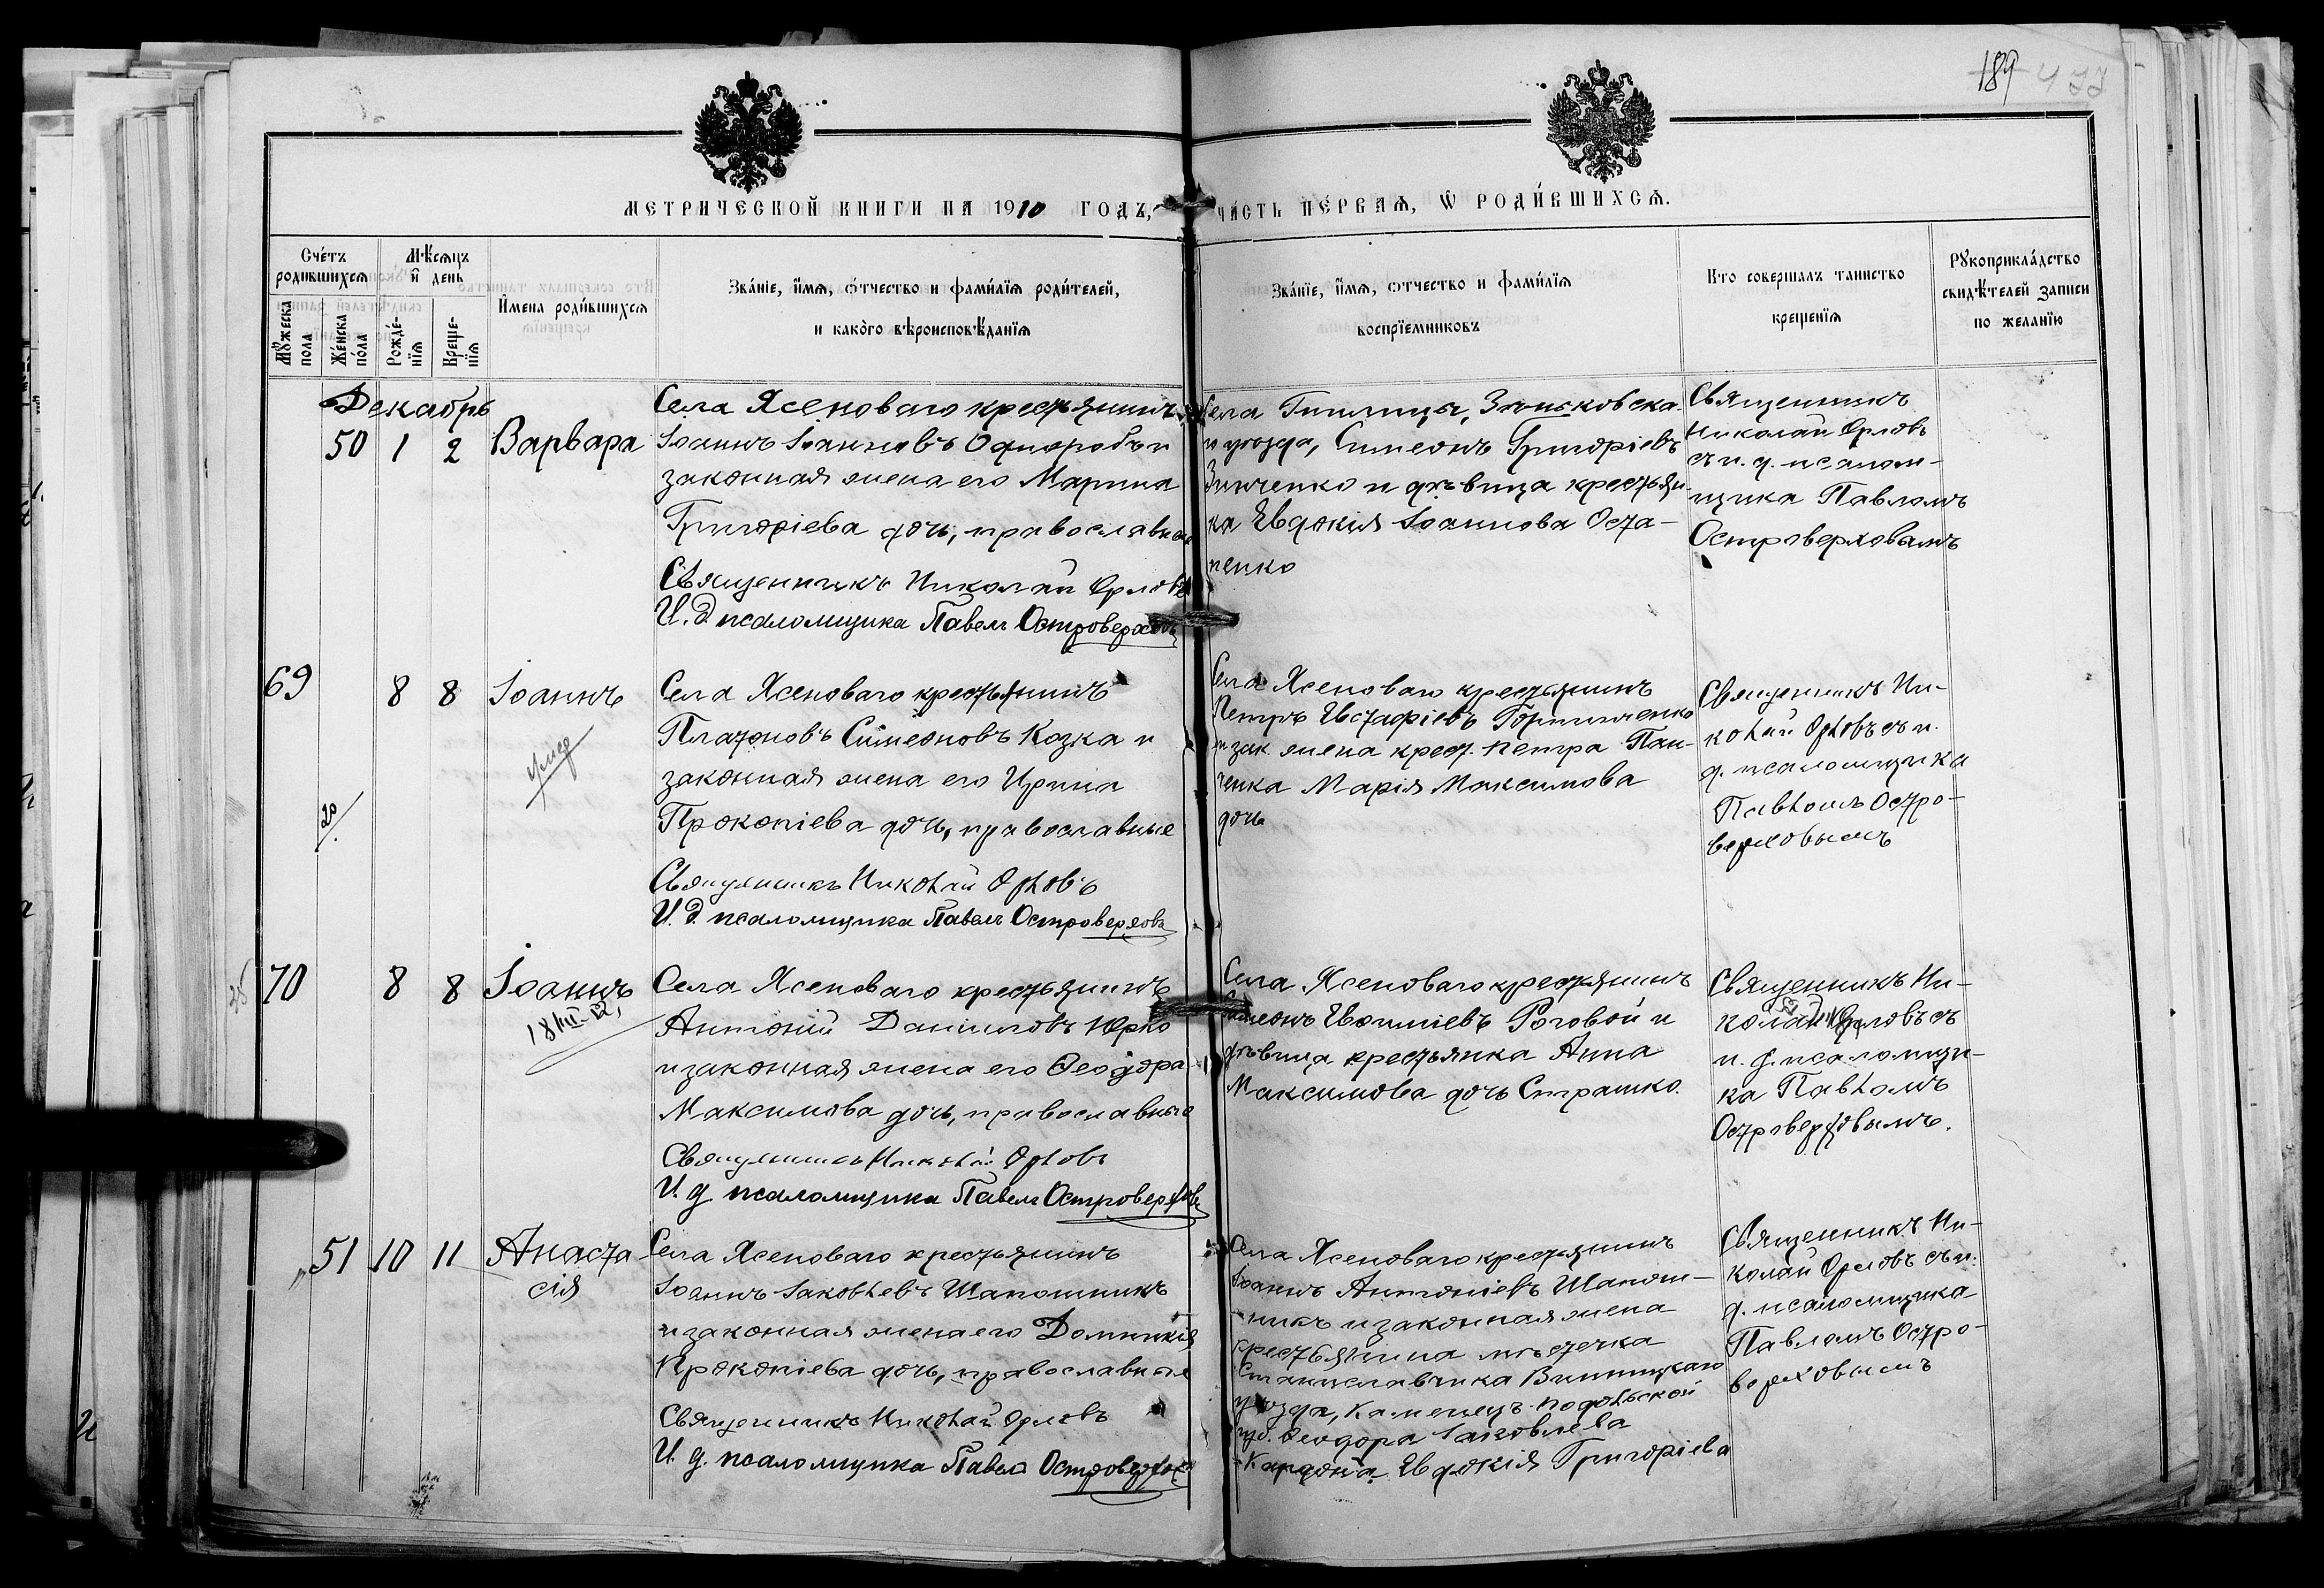 189
МЕТРИЧЕСКОЙ КНИГИ НА 1910 ГОДЪ,
ЧАСТЬ ПЕРВАЯ, Ѡ РОДИ́ВШИХСЯ.
Сче́тъ родившихся
Мѣ́сяцъ и день
Мꙋжеска пола
Же́нска по́ла
Рожде́нїя
Креще-нїя
И́мена роди́вшихся
Зва́нїе, и́мя, ѻ́тчество и фами́лїя роди́телей,
и како́го вѣроисповѣ́данїя
Зва́нїе, и́мя, ѻтчество и фами́лїя
воспрїемниковъ
Кто совершалъ таинство
крещенїя
Рꙋкоприкла́дство
свидѣ́телей записи
по желанїю
Декабрь
50 1 2 Варвара
Села Ясеноваго крестьянинъ
Іоаннъ Іоанновъ Однорогъ и
законная жена его Марина
Григоріева дочь, православные
Священникъ Николай Орловъ
И. д. псаломщика Павелъ Островерховъ
Села
уѣзда, Симеонъ Григоріевъ
Зинченко и дѣвица крестьян-
ка Евдокія Іоаннова Оста-
пенко
Священникъ
Николай Орловъ
съ и. д. псалом-
щика Павломъ
Островерховымъ
69 8 8 Іоаннъ
умер
20
Села Ясеноваго крестьянинъ
Платоновъ Симеоновъ Козка и
законная жена его Ирина
Прокопіева дочь, православные
Священникъ Николай Орловъ
И. д. псаломщика Павелъ Островерховъ
Села Ясеноваго крестьянинъ
Петръ Евстафіевъ
и зак. жена крест. Петра Пан-
ченка Марія Максимова
дочь
Священникъ Ни-
колай Орловъ съ и.
д. псаломщика
Павломъ Остро-
верховымъ
70 8 8 Іоаннъ
18/III-12
Села Ясеноваго крестьянинъ
Антоній Даниловъ Юрко
и законная жена его Ѳеодора
Максимова дочь, православные
Священникъ Николай Орловъ
И. д. псаломщика Павелъ Островерховъ
Села Ясеноваго крестьянинъ
Симеонъ Евѳиміевъ Роговой и
дѣвица крестьянка Анна
Максимова дочь Страшко.
Священникъ Ни-
колай Орловъ съ
и. д. псаломщи-
ка Павломъ
Островерховымъ.
51 10 11 Анаста
сія
Села Ясеноваго крестьянинъ
Іоаннъ Іаковлевъ Шапошникъ
и законная жена его Домникія
Прокопіева дочь, православные
Священникъ Николай Орловъ
И. д. псаломщика Павелъ Островерховъ
Села Ясеноваго крестьянинъ
Іоаннъ Антоніевъ Шапош-
никъ и законная жена
крестьянина мѣстечка
Станиславчика Винницкаго
уѣзда, Каменецъ-Подольской
губ. Ѳеодора Іаковлева
Евдокія Григоріева
Священникъ Ни-
колай Орловъ съ и.
д. псаломщика
Павломъ Остро-
верховымъ